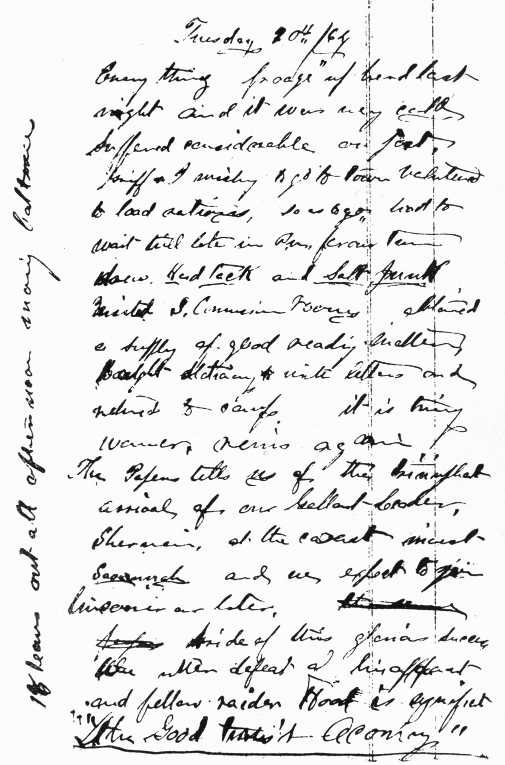 Tuesday 20th/64
Every thing froze up hard last
night and it was very cold,
suffered considerable on post,
& I wishing to go to town volunteered
to load rations, so as to go, had to
wait till late in P.M. for our turn
drew Hard Tack and Salt Junk
Visited S. Commission Rooms obtained
a supply of good reading matter,
Bought stationary to write letters and
returned to camp it is
warmer, again
The Papers tells us of the triumphant
arrival of our Gallant Leader,
Sherman, at the coast
Savannah and we expect to join
him sooner or later,
side of this glorious success
the utter defeat of
and fellow raider Hood is
"The Good time's Acoming"
18 teams out all afternoon